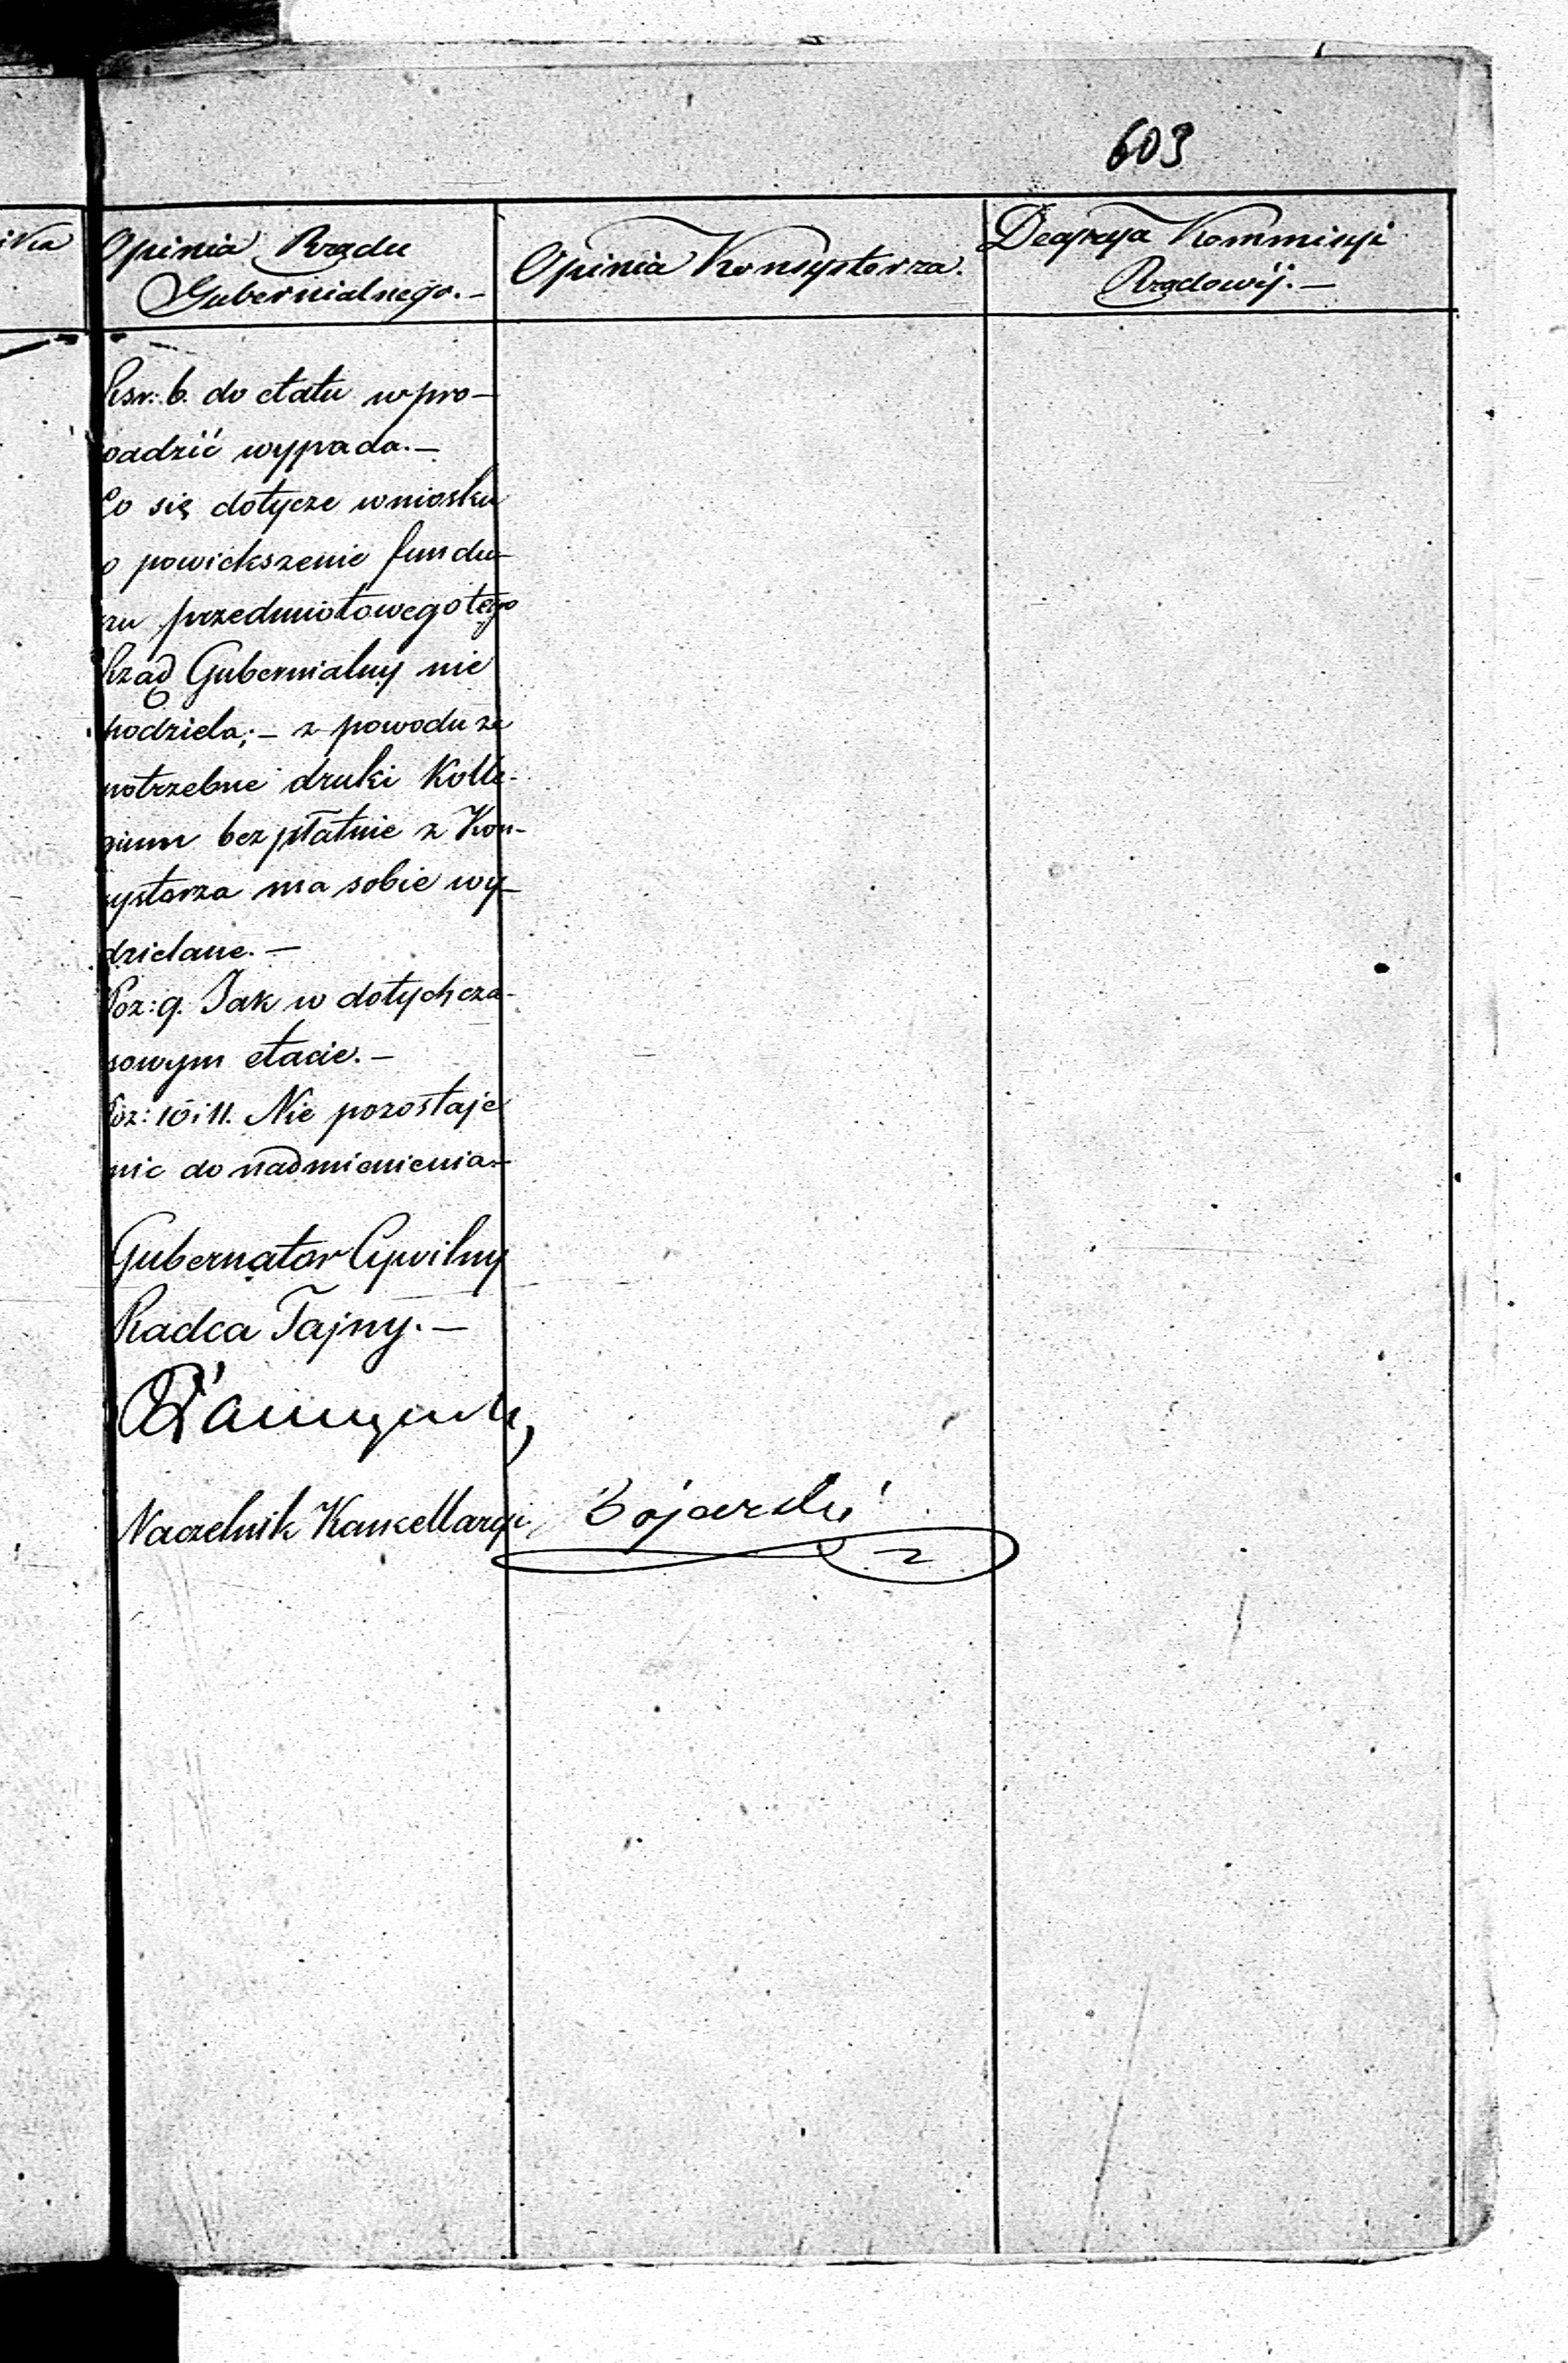 603
Opinia Rządu
Gubernialnego. —
Opinia Konsystorza.
Decyzya Kommissyi
Rządowéj. —
Rsr: 6. do etatu wpro-
wadzić wypada. —
Co się dotycze wniosku
o powiekszenie fundu-
szu przedmiotowego tego
Rząd Gubernialny nie
podziela; — z powodu że
potrzebne druki Kolle-
gium bezpłatnie z Kon-
systorza ma sobie wy-
dzielane. —
Poz: 9. Jak w dotychcza-
sowym etacie. —
Poz: 10 i 11. Nie pozostaje
nic do nadmienienia. —
Gubernator Cywilny
Radca Tajny. —
Naczelnik Kancellaryi